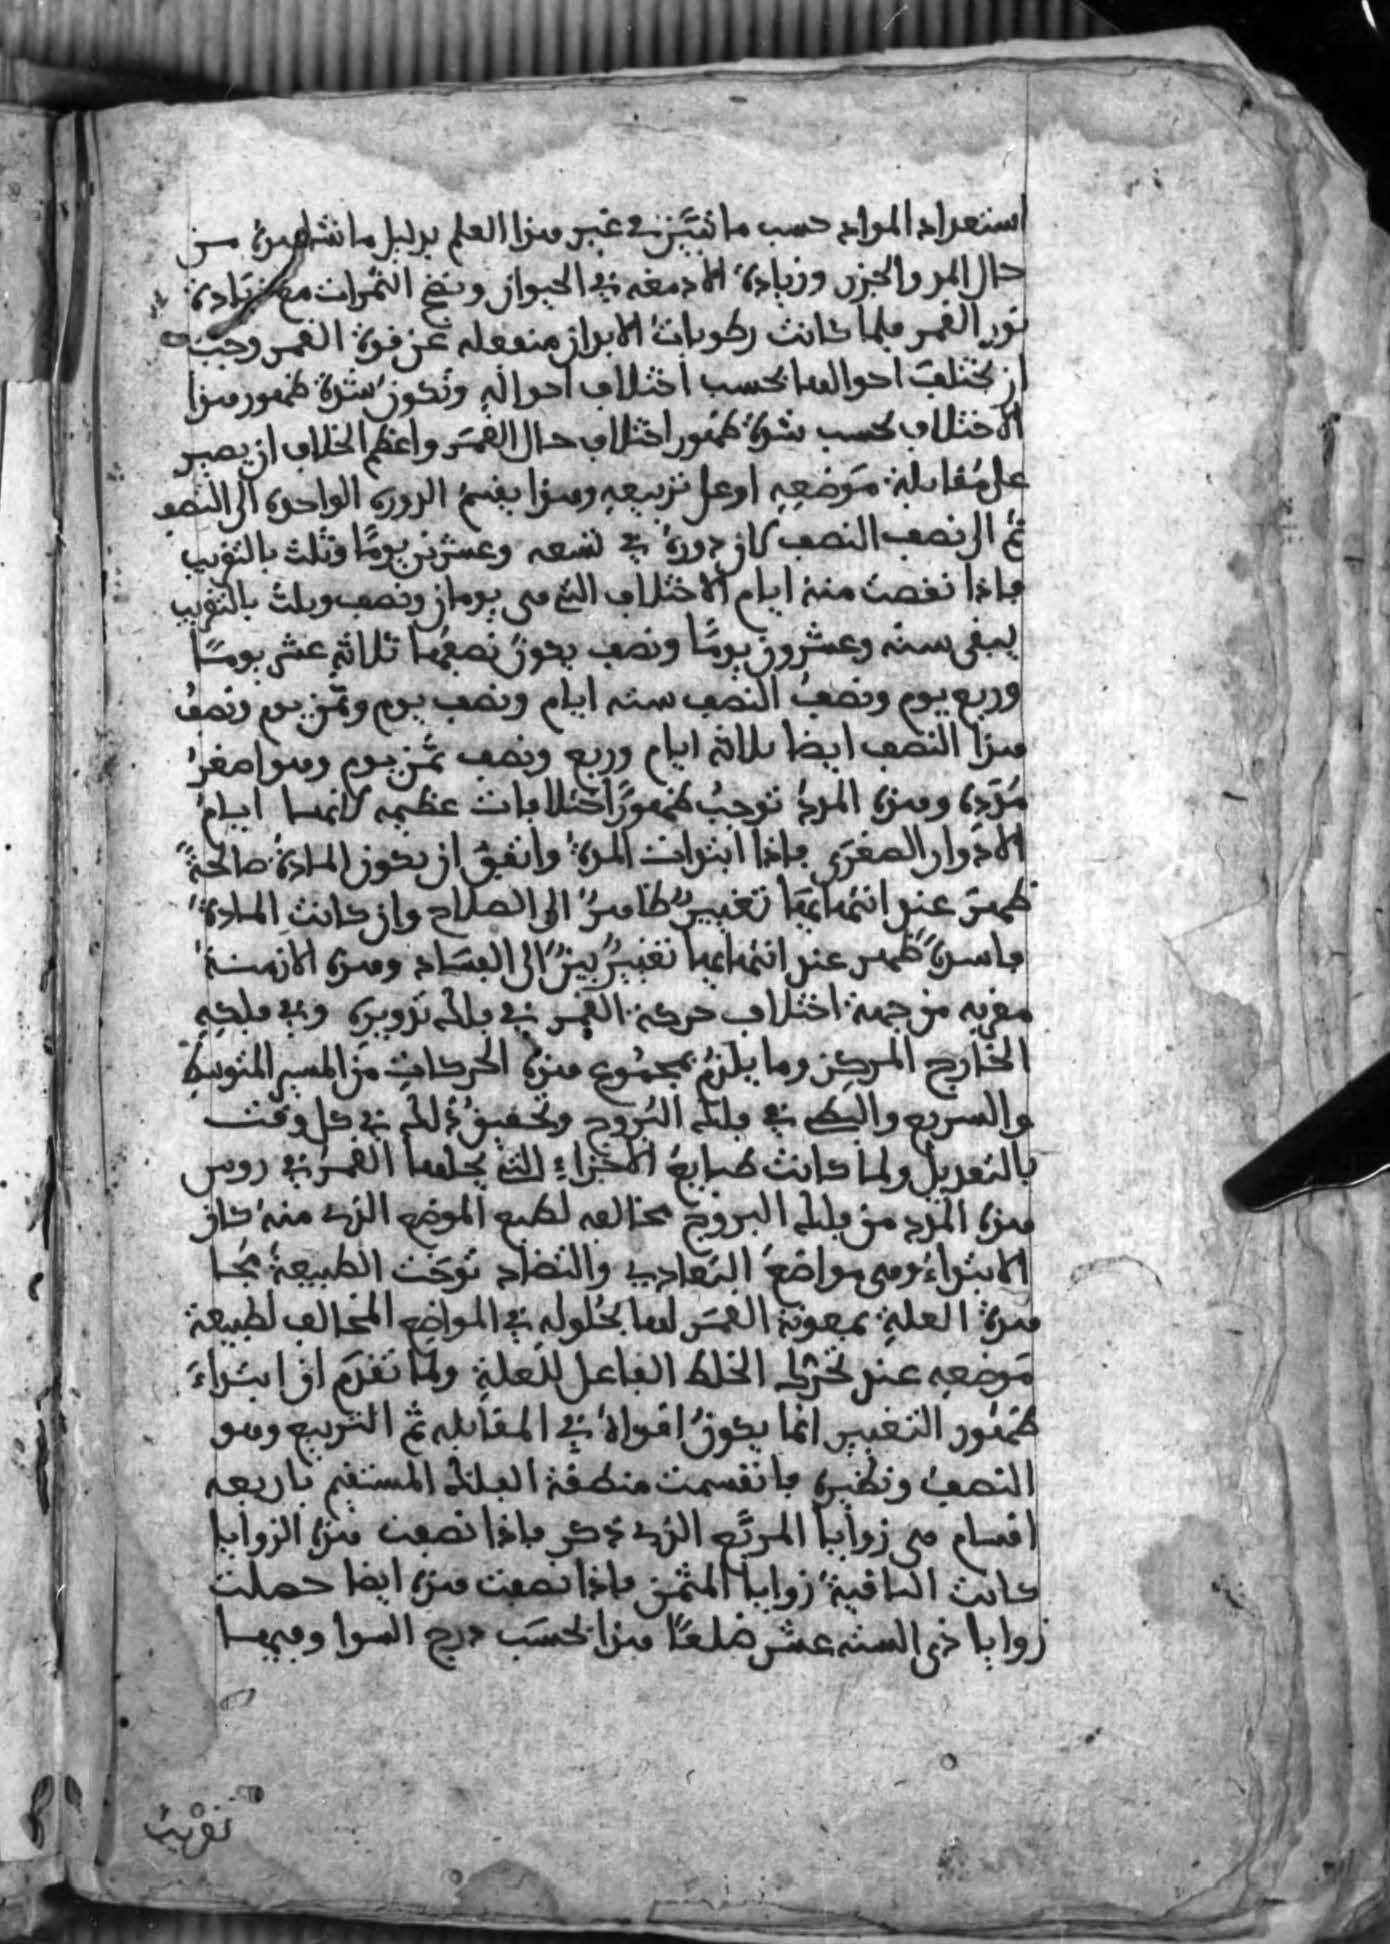 استعداد المواد حسب ما تبين في غير هذا العلم بدليل ما نشاهده من
حال المد والجزر وزيادة الادمغه في الحيوان ونضج الثمرات مع زيادة
نور القمر فلما كانت رطوبات الابدان منفعله عن قوة القمر وجب
ان تختلف احوالها بحسب اختلاف احواله وتكون شدة ظهور هذا
الاختلاف بحسب شدة ظهور اختلاف حال القمر واعظم الخلاف ان يصير
على مقابلة موضعه او على تربيعه وهذا يقسم الدورة الواحدة الى النصف
ثم الى نصف النصف لان دورة في تسعه وعشرين يومًا وثلث بالتقريب
فاذا نقصت منه ايام الاختلاف التي هي يومان ونصف وثلث بالتقريب
يبقى سته وعشرون يومًا ونصف يكون نصفها ثلاثة عشر يومًا
وربع يوم ونصف النصف سته ايام ونصف يوم وثمن يوم ونصف
هذا النصف ايضا ثلاثه ايام وربع ونصف ثمن يوم وهو اصغر
مُدّده وهذه المدة توجب ظهورًا اختلافات عظيمه لانها ايام
الادوار الصغرى فاذا ابتدات المدة واتفق ان يكون المادة صالحةً
ظهر عند انتهايها تغيير ظاهر الى الصلاح وان كانت المادة
فاسدة ظهر عند انتهايها تغيير بين الى الفساد وهذه الازمنة
مقربه من جهة اختلاف حركة القمر في فلك تدويره وفي فلكه
الخارج المركز وما يلزم بمجموع هذه الحركات من المسير المتوسط
والسريع والبطى في فلك البروج وتحقيق ذلك في كل وقت
بالتعديل ولما كانت طبايع الاجزاء التي يحلها القمر في روس
هذه المدد من فلك البروج مخالفه لطبع الموضع الذي منه كان
الابتداء وهي مواضع التعادي والتضاد توخت الطبيعة بها
هذه العلة بمعونة القمر لها بحلوله في المواضع المخالف لطبيعة
موضعه عند تحرك الخلط الفاعل للعلة ولما تقدم ان ابتداء
ظهور التغيير انما يكون اقواه في المقابله ثم التربيع وهو
النصف ونظيره فانقسمت منطقة الفلك المستقيم باربعه
اقسام هي زوايا المربع الذي ذكر فاذا نصفت هذه الزوايا
كانت الباقية زوايا المثمن فاذا نصفت هذه ايضا حصلت
زوايا ذي السته عشر ضلعًا هذا بحسب درج السوا وفيها
تقريب